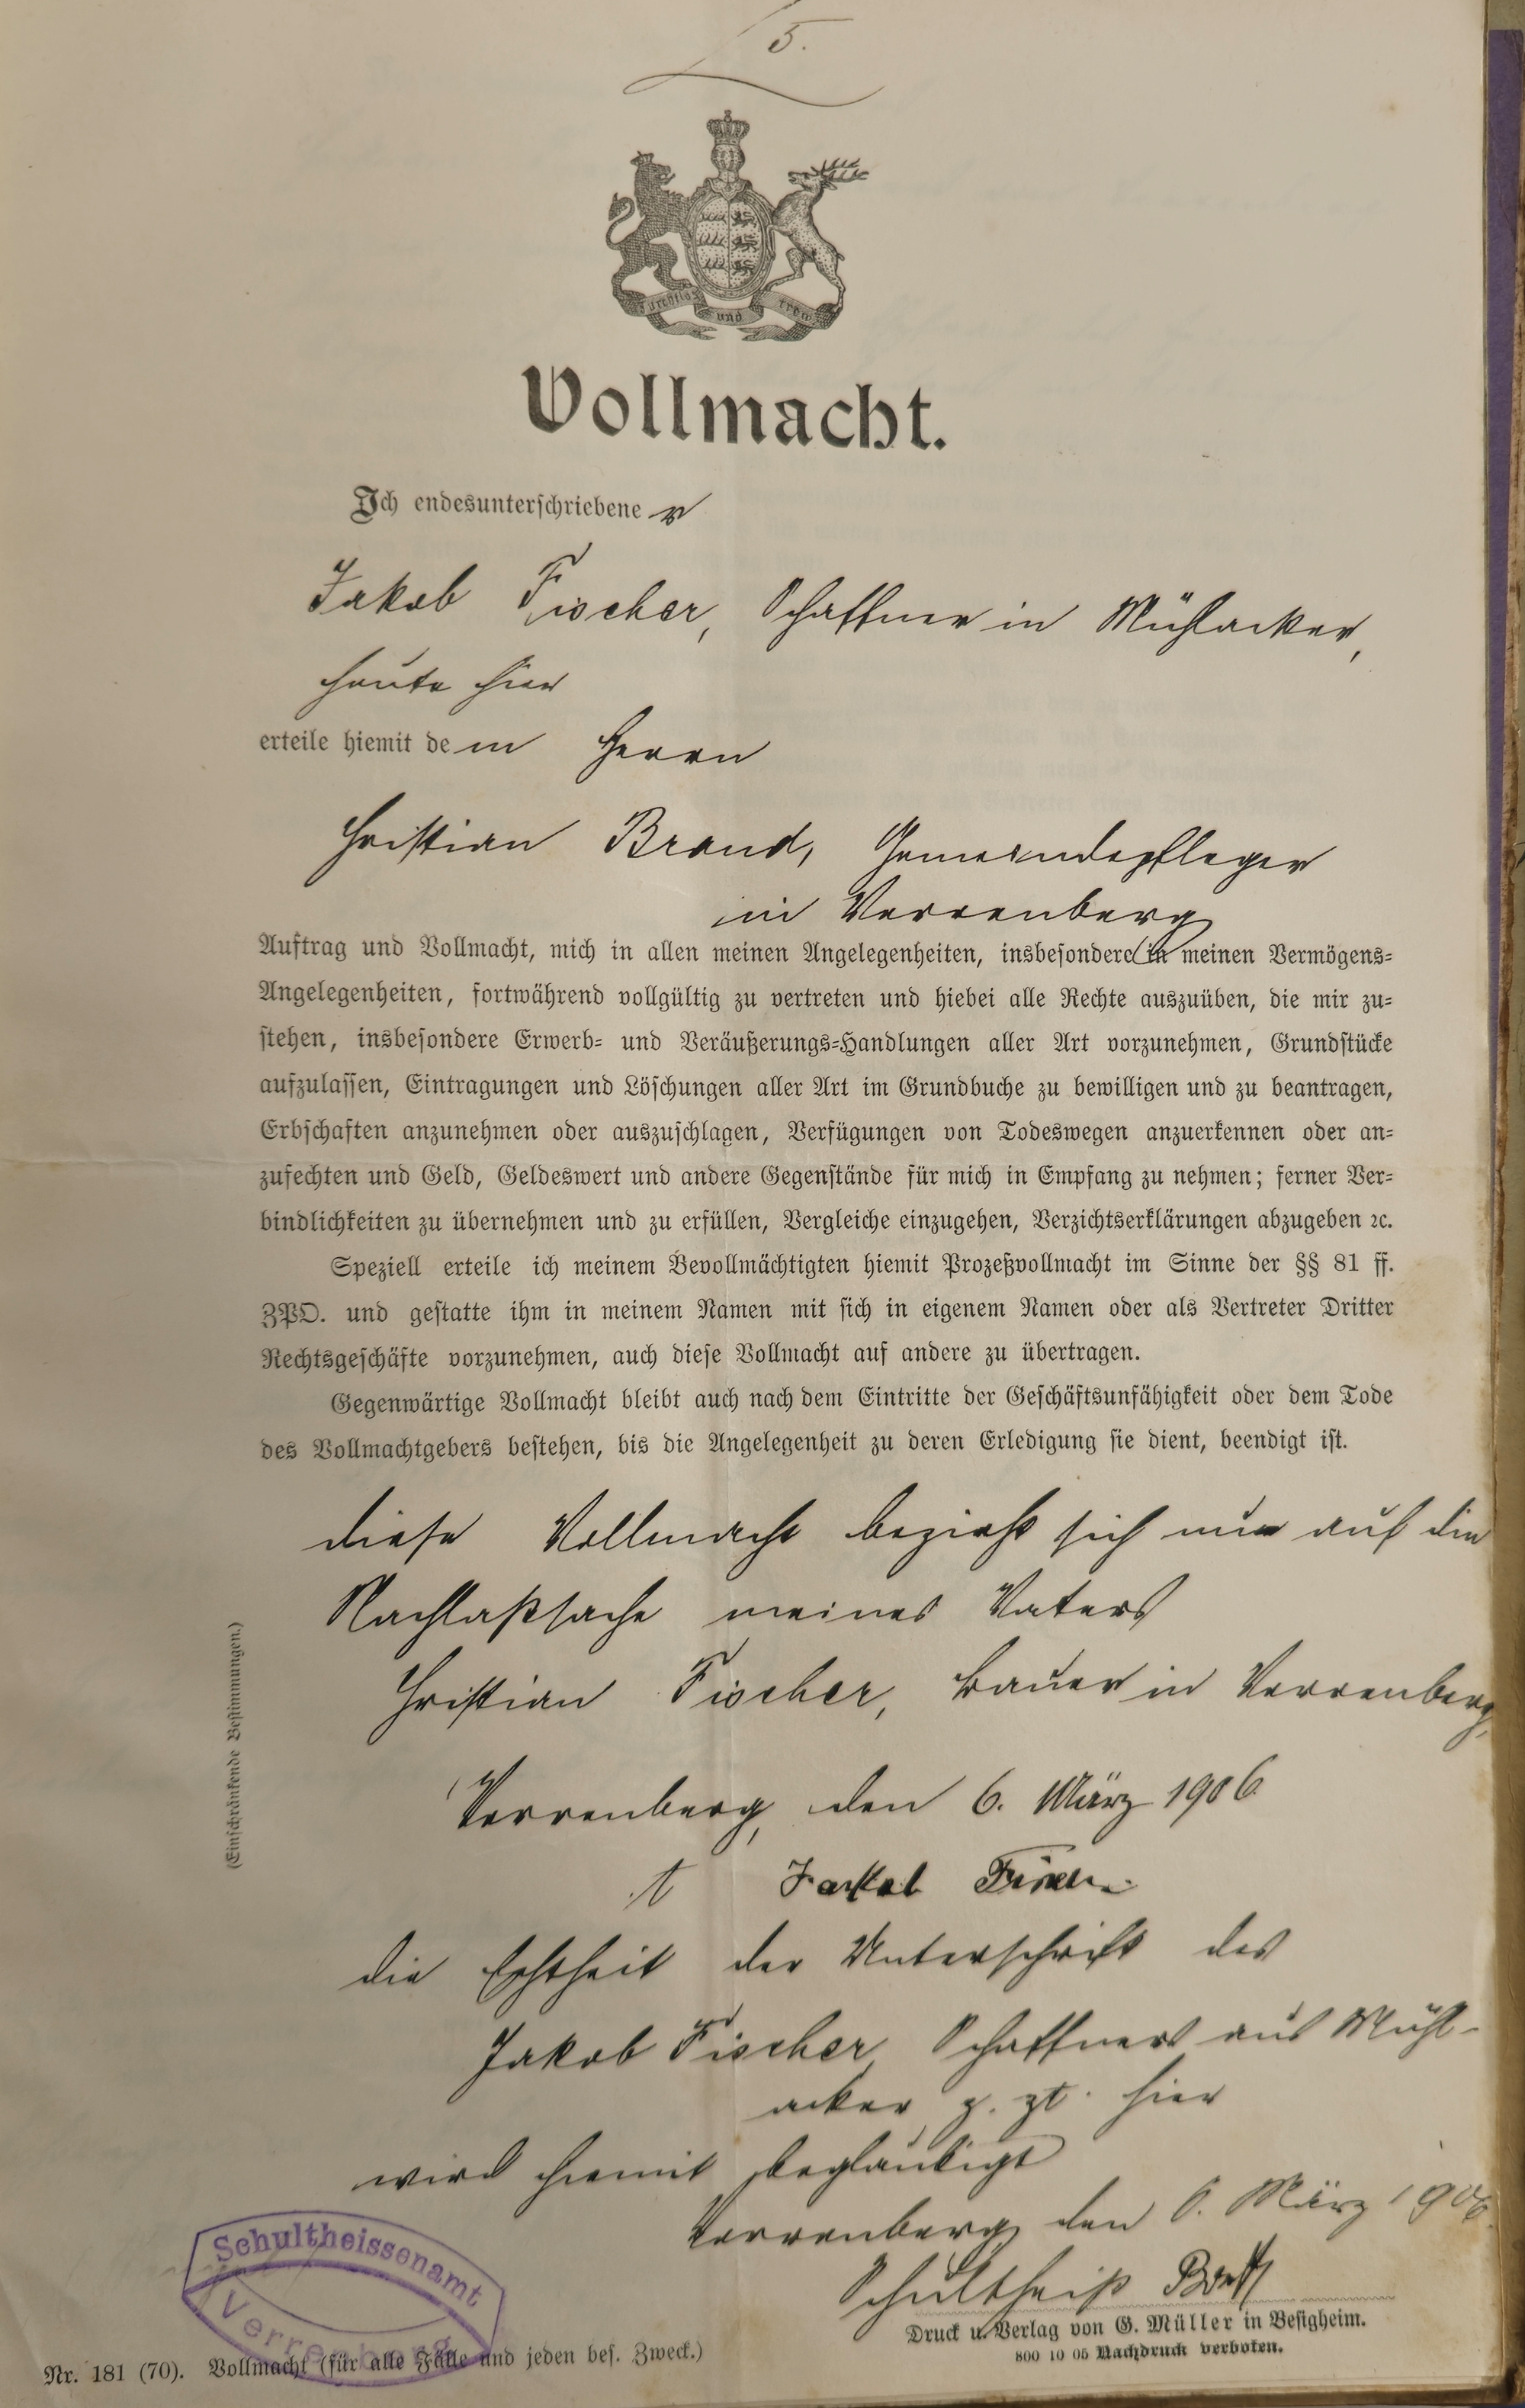 5.
Furchtlos und trew
Vollmacht.
Ich endesunterschriebene r
Jakob Fischer, Schaffner in Mühlacker,
heute hier
erteile hiemit de m Herrn
Christian Brand, Gemeindepfleger
in Verrenberg
Auftrag und Vollmacht, mich in allen meinen Angelegenheiten, insbesondere in meinen Vermögens-
Angelegenheiten, fortwährend vollgültig zu vertreten und hiebei alle Rechte auszuüben, die mir zu-
stehen, insbesondere Erwerb- und Veräußerungs-Handlungen aller Art vorzunehmen, Grundstücke
aufzulassen, Eintragungen und Löschungen aller Art im Grundbuche zu bewilligen und zu beantragen,
Erbschaften anzunehmen oder auszuschlagen, Verfügungen von Todeswegen anzuerkennen oder an-
zufechten und Geld, Geldeswert und andere Gegenstände für mich in Empfang zu nehmen; ferner Ver-
bindlichkeiten zu übernehmen und zu erfüllen, Vergleiche einzugehen, Verzichtserklärungen abzugeben ꝛc.
Speziell erteile ich meinem Bevollmächtigten hiemit Prozeßvollmacht im Sinne der §§ 81 ff.
ZPO. und gestatte ihm in meinem Namen mit sich in eigenem Namen oder als Vertreter Dritter
Rechtsgeschäfte vorzunehmen, auch diese Vollmacht auf andere zu übertragen.
Gegenwärtige Vollmacht bleibt auch nach dem Eintritte der Geschäftsunfähigkeit oder dem Tode
des Vollmachtgebers bestehen, bis die Angelegenheit zu deren Erledigung sie dient, beendigt ist.
(Einschränkende Bestimmungen.)
diese Vollmacht bezieht sich nur auf die
Nachlaßsache meines Vaters
Christian Fischer, Bauer in Verrenberg,
Verrenberg, den 6. März 1906
t Jackob Fischer
die Echtheit der Unterschrift des
Jakob Fischer Schaffners aus Mühl-
acker z. zt. hier
wird hiemit beglaubigt
Verrenberg den 6. März 1906.
Schultheiß
Schultheissenamt
Verrenberg
Druck u. Verlag von G. Müller in Besigheim.
800 10 05 Nachdruck verboten.
Nr. 181 (70). Vollmacht (für alle Fälle und jeden bes. Zweck.)